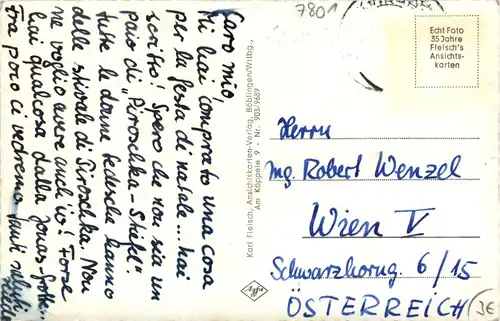 7801
Caro mio,
Mi hai comprato una cosa
per la festa di natale... hai
scritto! Spero che non sia un
paio di "Piroschka-Stiefel"
tutte le donne tedesche hanno
delle stivale di Piroschka. Non
ne voglio avere anch'io! Forse
hai qualcosa dalla Jonas-Grotte...
Fra poco ci vedremo
Karl Fleisch, Ansichtskarten-Verlag, Böblingen/Wttbg.,
Am Käppele 9 - Nr. 903/9689
Agfa
Echt Foto
35 Jahre
Fleisch's
Ansichts-
karten
Herrn
Ing. Robert Wenzel
Wien V
Schwarzhorng. 6/15
ÖSTERREICH
3€